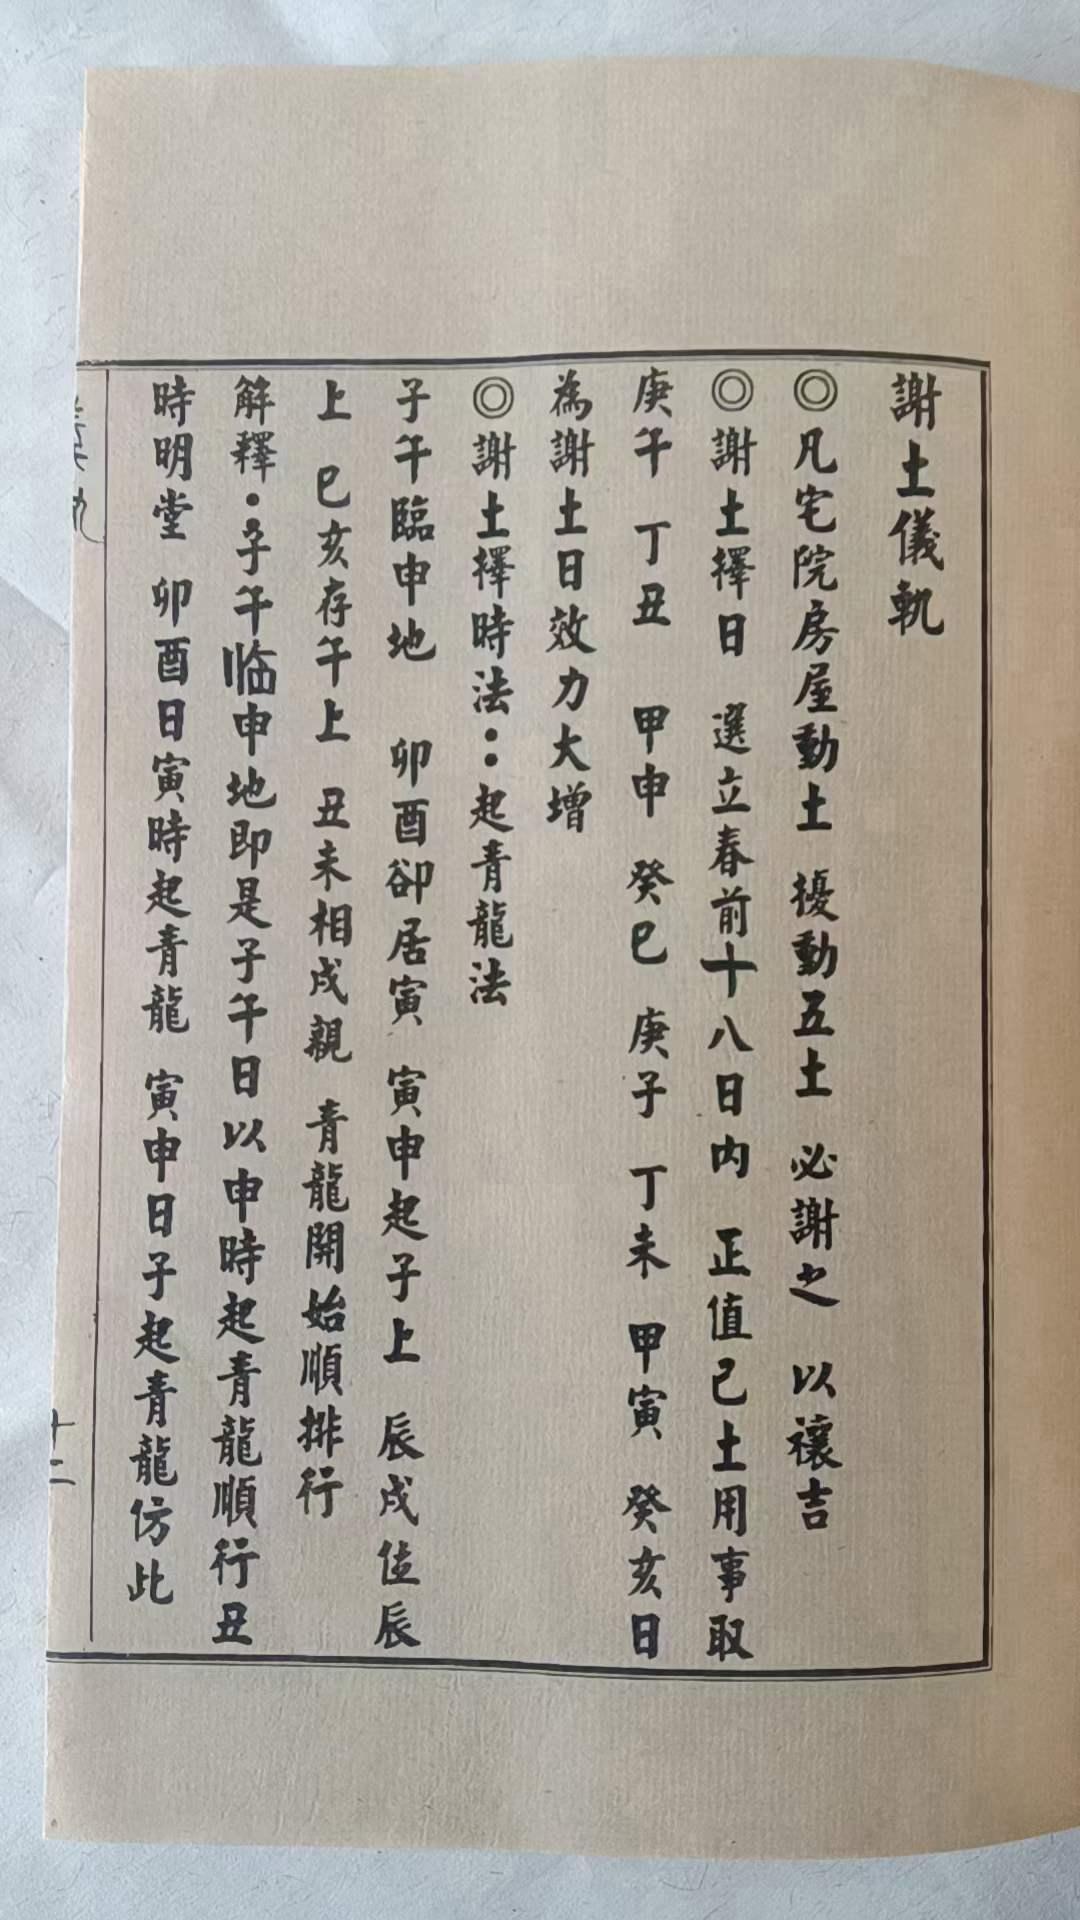 謝土儀軌
◎凡宅院房屋動土 擾動五土 必謝之 以禳吉
◎謝土擇日 選立春前十八日内 正值己土用事取
庚午 丁丑 甲申 癸巳 庚子 丁未 甲寅 癸亥日
為謝土日效力大增
◎謝土擇時法：起青龍法
子午臨申地 卯酉卻居寅 寅申起子上 辰戌位辰
上 巳亥存午上 丑未相戌親 青龍開始順排行
解釋：子午临申地即是子午日以申時起青龍順行丑
時明堂 卯酉日寅時起青龍 寅申日子起青龍仿此
十二